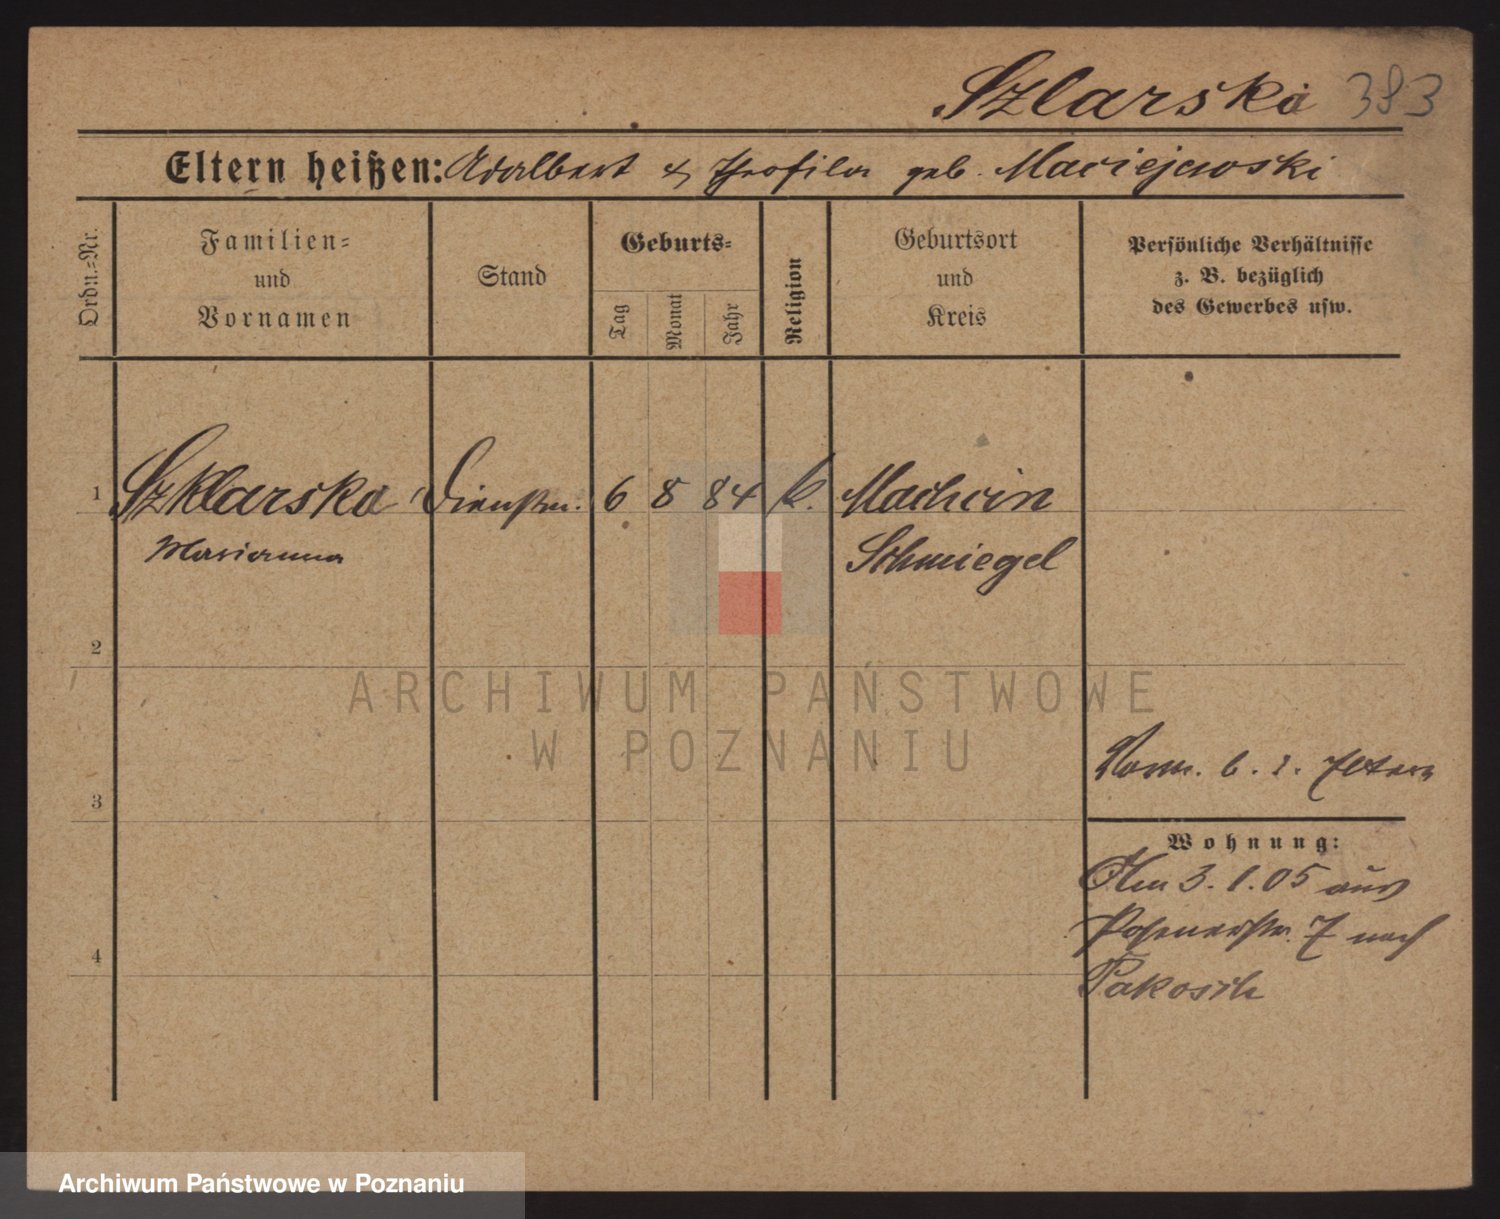 Szlarska 383
Eltern heißen: Adalbert & Theofila geb. Maciejewski
Ordn.=Nr.
Familien=
und
Vornamen
Stand
Geburts=
Tag
Monat
Jahr
Religion
Geburtsort
und
Kreis
Persönliche Verhältnisse
z. B. bezüglich
des Gewerbes usw.
1 Szklarska Dienstm. 6 8 84 k. Machcin
Marianna Schmiegel
2
ARCHIWUM PAŃSTWOWE
W POZNANIU
Eltern
3
Wohnung:
Am 3.1.05 aus
Posenerstr. 7 nach
4
Archiwum Państwowe w Poznaniu